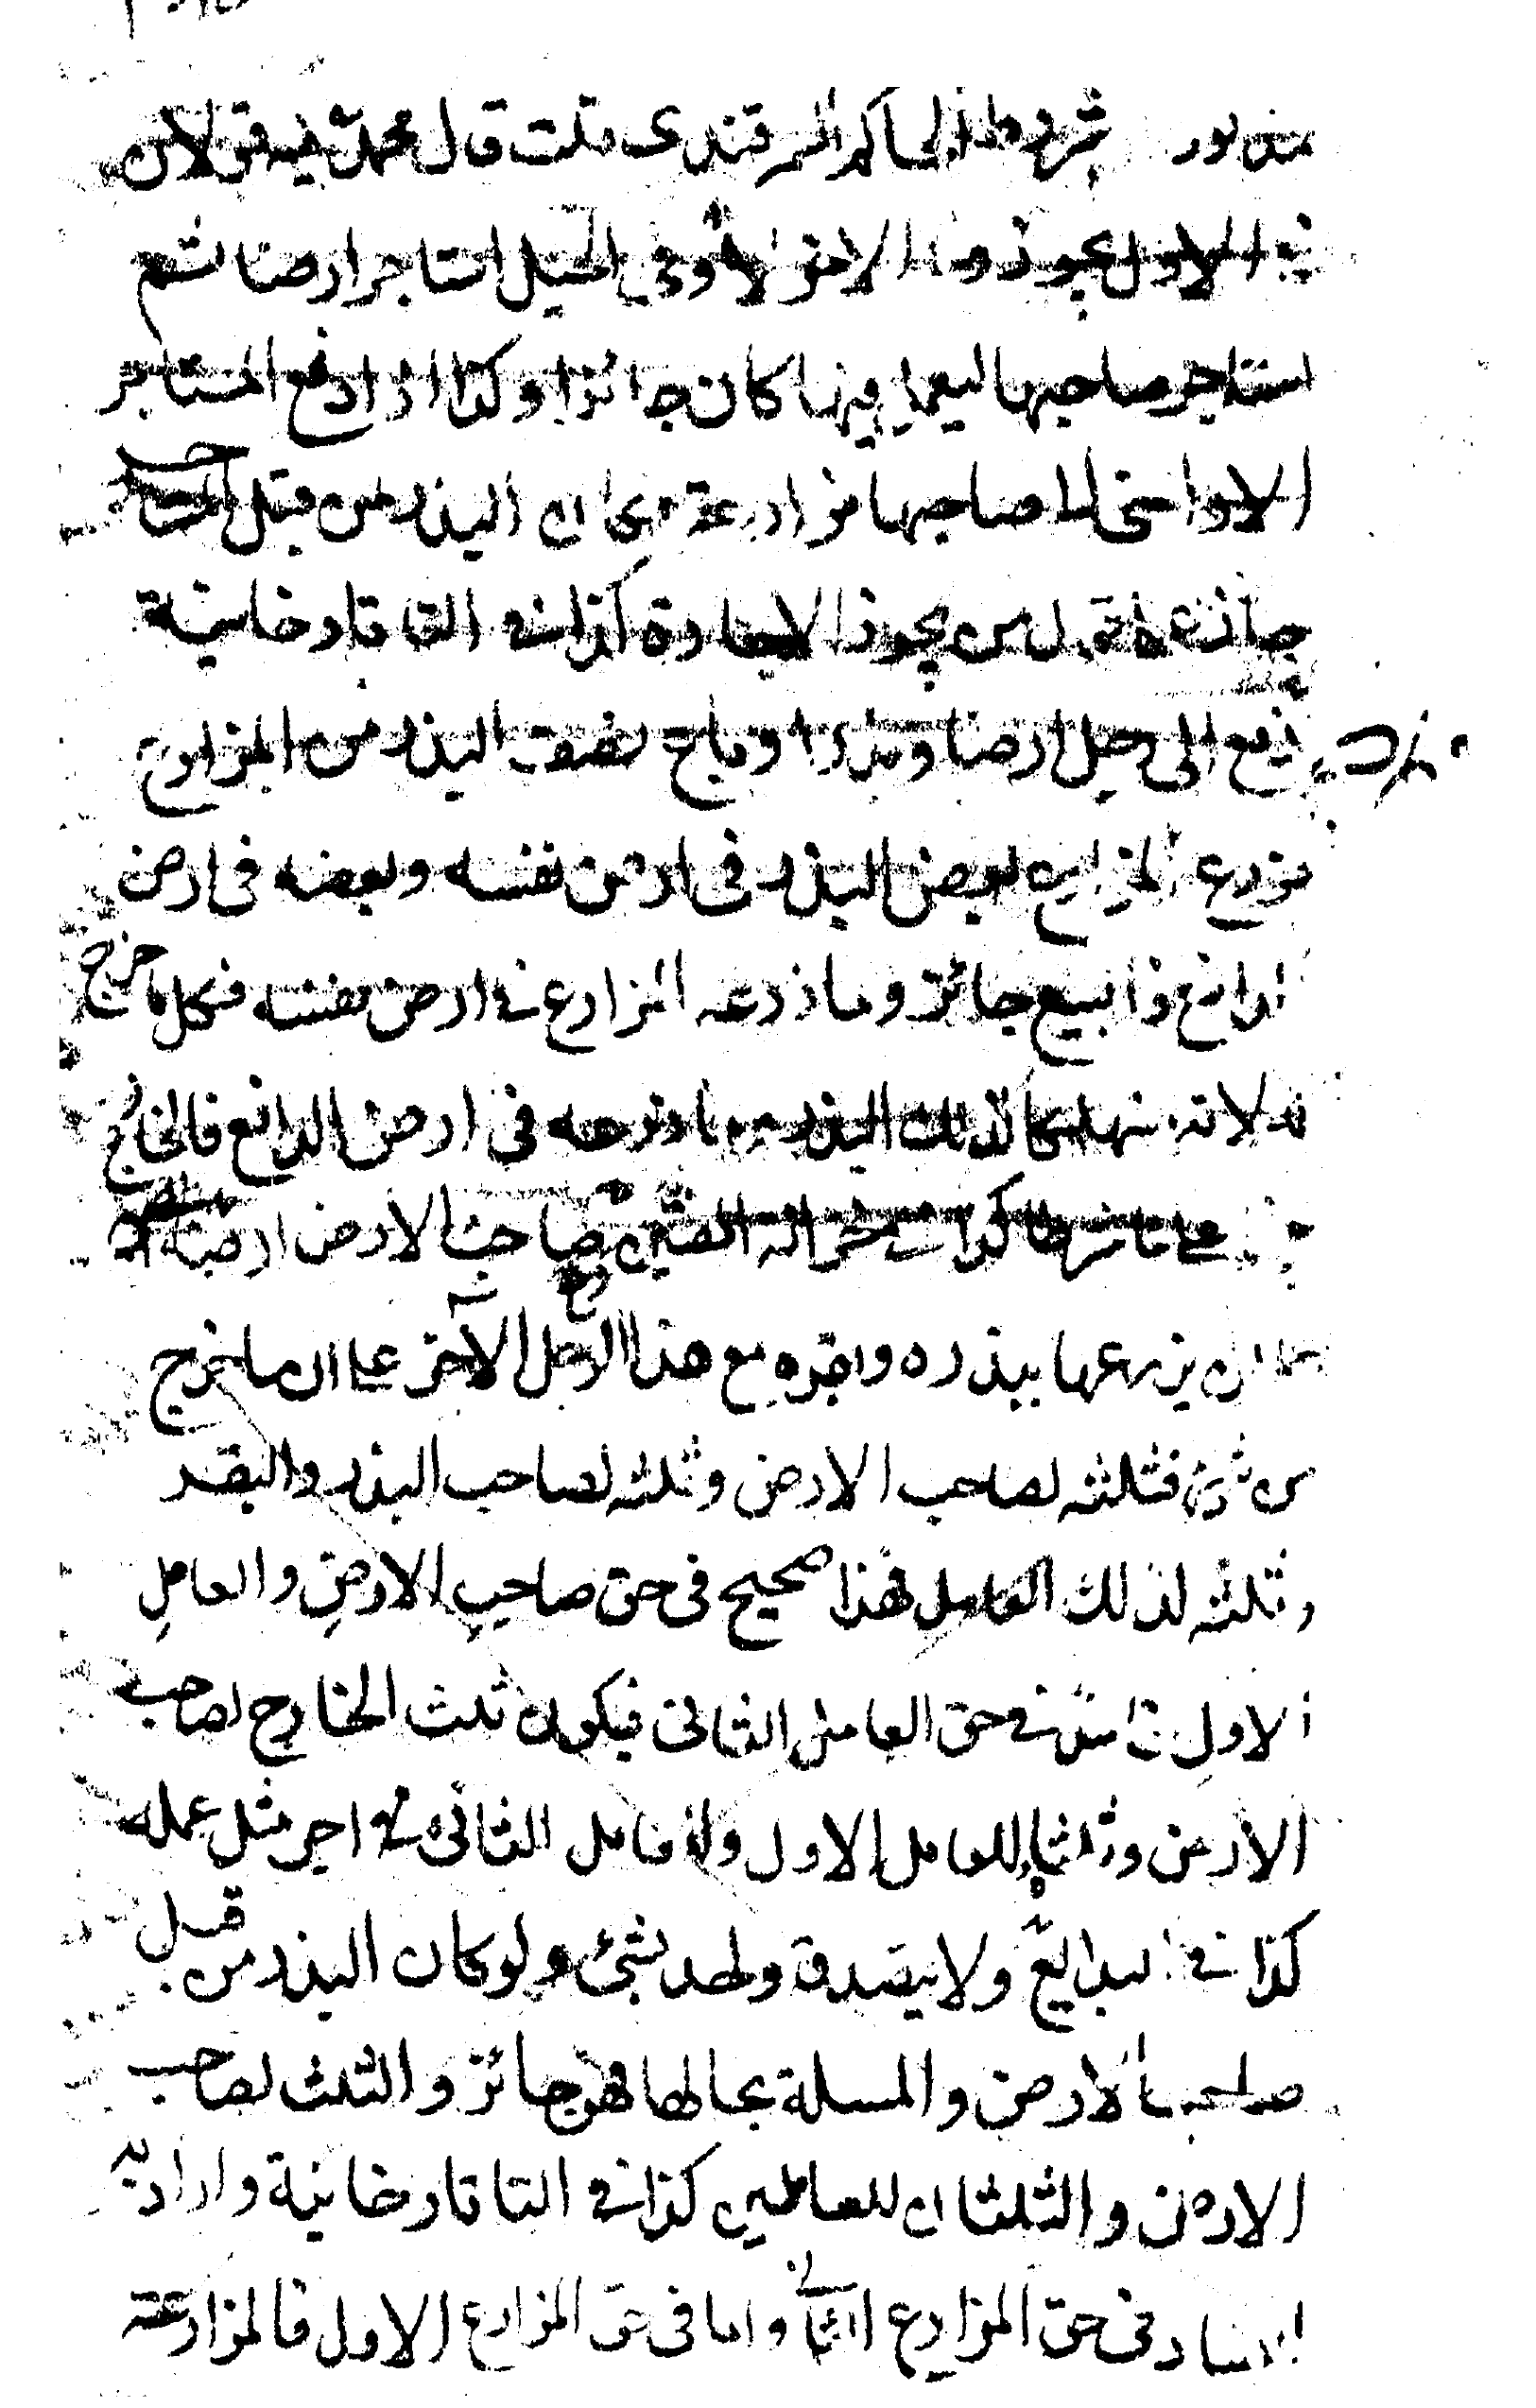 شروط الحاكم السمرقندى قلت قال محمد فيه قولان
فى الاول يجوز وفى الاخر لا وفى الحيل استاجر ارضا ثم
استاجر صاحبها ليعمل فيها كان جائزا وكذا اذا دفع المستاجر
الاراضى الى صاحبها مزارعة ان كان البذر من قبل المستاجر
جاز يجوز الاجارة كذا فى التاتارخانية
دفع الى رجل ارضا وبذرا وباع نصف البذر من المزارع
فزرع المزارع بعض البذر فى ارض نفسه وبعضه فى ارض
الدافع فالبيع جائز وما زرعه المزارع فى ارض نفسه فكل ما خرج
له لانه لذلك البذر وما زرعه فى ارض الدافع فالخارج
على ما شرطا كذا فى خزانة المفتين دفع صاحب الارض ارضه
ان يزرعها ببذره وبقره مع هذا الرجل الآخر على ان ما خرج
من شئ فثلثه لصاحب الارض وثلثه لصاحب البذر والبقر
وثلثه لذلك العامل فهذا صحيح فى حق صاحب الارض والعامل
الاول فاسد فى حق العامل الثانى فيكون ثلث الخارج لصاحب
الارض وثلثاه للعامل الاول وللعامل الثانى اجر مثل عمله
كذا فى البدايع ولا يتصدق واحد بشئ ولو كان البذر من قبل
صاحب الارض والمسلة بحالها فهو جائز والثلث لصاحب
الارض والثلثان للعاملين كذا فى التاتارخانية واراد به
الفساد فى حق المزارع الثانى واما فى حق المزارع الاول فالمزارعة